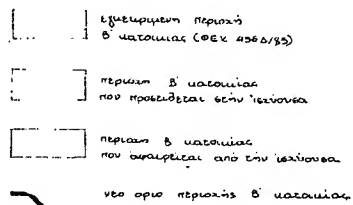 εγκεκριμενη περιοχή
β' κατοικιας (ΦΕΚ 456Δ/85)
περιοχη β' κατοικίας
που προστιθεται στην ισχύουσα
περιοχη β κατοικίας
που αφαιρείται από την ισχύουσα
νεο οριο περιοχής β' κατοικίας